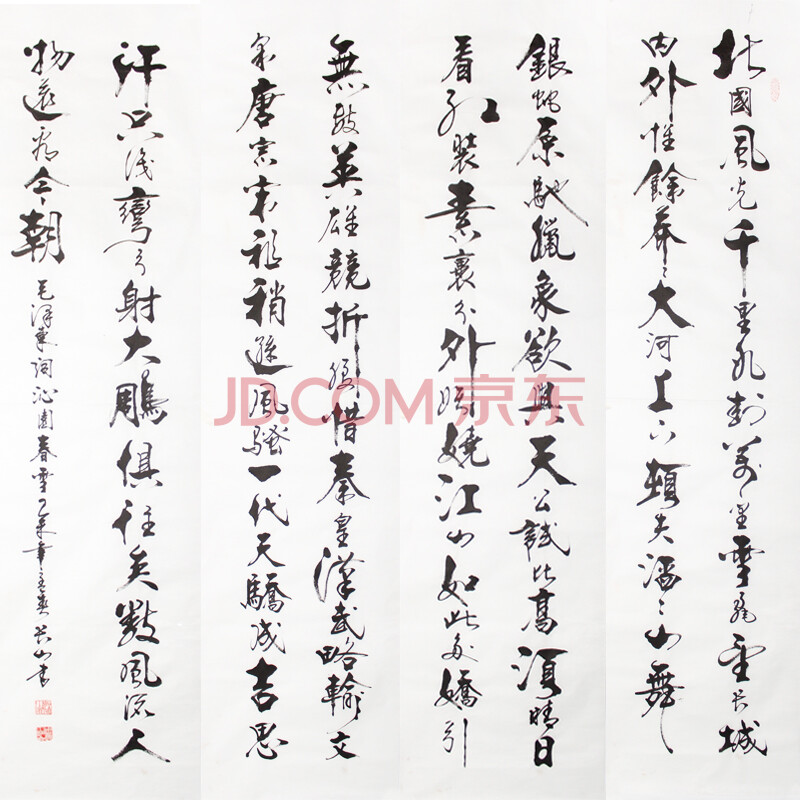 北國風光千里冰封萬里雪飄望长城
内外惟餘莽〻大河上下頓失滔〻山舞
銀蛇原馳蠟象欲與天公試比高須晴日
看紅裝素裹分外妖嬈江山如此多嬌引
無數英雄競折腰惜秦皇漢武略輸文
采唐宗宋祖稍遜風騷一代天驕成吉思
汗只識彎弓射大雕俱往矣數風流人
物還看今朝
毛澤東詞沁園春雪乙未年
JD.COM 京东